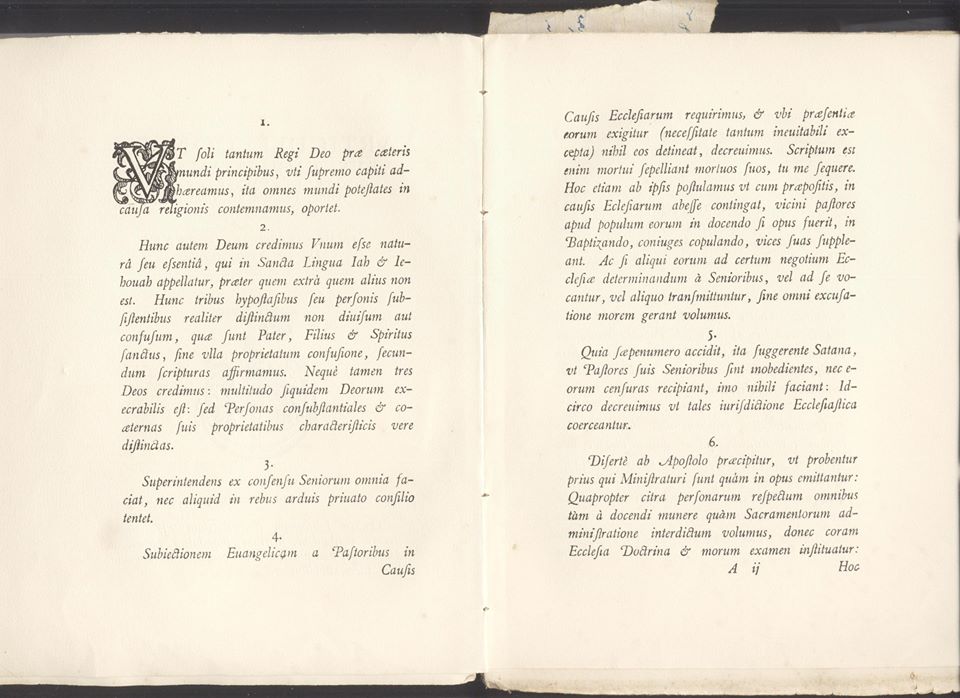 1.
VT ſoli tantum Regi Deo præ cæteris
mundi principibus, vti ſupremo capiti ad-
hæreamus, ita omnes mundi poteſtates in
cauſa religionis contemnamus, oportet.
2.
Hunc autem Deum credimus Vnum eſse natu-
râ ſeu eſsentiâ, qui in Sancta Lingua Iah & Ie-
houah appellatur, præter quem extrà quem alius non
est. Hunc tribus hypoſtaſibus ſeu perſonis ſub-
ſiſtentibus realiter diſtinctum non diuiſum aut
confuſum, quæ ſunt Pater, Filius & Spiritus
ſanctus, ſine vlla proprietatum confuſione, ſecun-
dum ſcripturas affirmamus. Nequè tamen tres
Deos credimus: multitudo ſiquidem Deorum ex-
ecrabilis eſt: ſed Perſonas conſubſtantiales & co-
æternas ſuis proprietatibus characteriſticis vere
diſtinctas.
3.
Superintendens ex conſenſu Seniorum omnia fa-
ciat, nec aliquid in rebus arduis priuato conſilio
tentet.
4.
Subiectionem Euangelicam a Paſtoribus in
Cauſis
Cauſis Eccleſiarum requirimus, & vbi præſentiæ
eorum exigitur (neceſſitate tantum ineuitabili ex-
cepta) nihil eos detineat, decreuimus. Scriptum est
enim mortui ſepelliant mortuos ſuos, tu me ſequere.
Hoc etiam ab ipſis poſtulamus vt cum præpoſitis, in
cauſis Ecleſiarum abeſſe contingat, vicini paſtores
apud populum eorum in docendo ſi opus fuerit, in
Baptizando, coniuges copulando, vices ſuas ſupple-
ant. Ac ſi aliqui eorum ad certum negotium Ec-
cleſiæ determinandum à Senioribus, vel ad ſe vo-
cantur, vel aliquo tranſmittuntur, ſine omni excuſa-
tione morem gerant volumus.
5.
Quia ſæpenumero accidit, ita ſuggerente Satana,
vt Paſtores ſuis Senioribus ſint inobedientes, nec e-
orum cenſuras recipiant, imo nihili faciant: Id-
circo decreuimus vt tales iuriſdictione Eccleſiaſtica
coerceantur.
6.
Diſertè ab Apoſtolo præcipitur, vt probentur
prius qui Miniſtraturi ſunt quàm in opus emittantur:
Quapropter citra perſonarum reſpectum omnibus
tùm à docendi munere quàm Sacramentorum ad-
miniſtratione interdictum volumus, donec coram
Eccleſia Doctrina & morum examen inſtituatur:
A ij Hoc